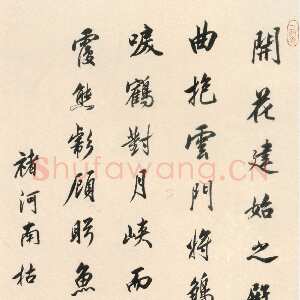 開花建始之殿
曲抱雲門將鶴
唳鶴對月峽而
霞熊彩顧盼魚
褚河南枯
Shufawang.cn